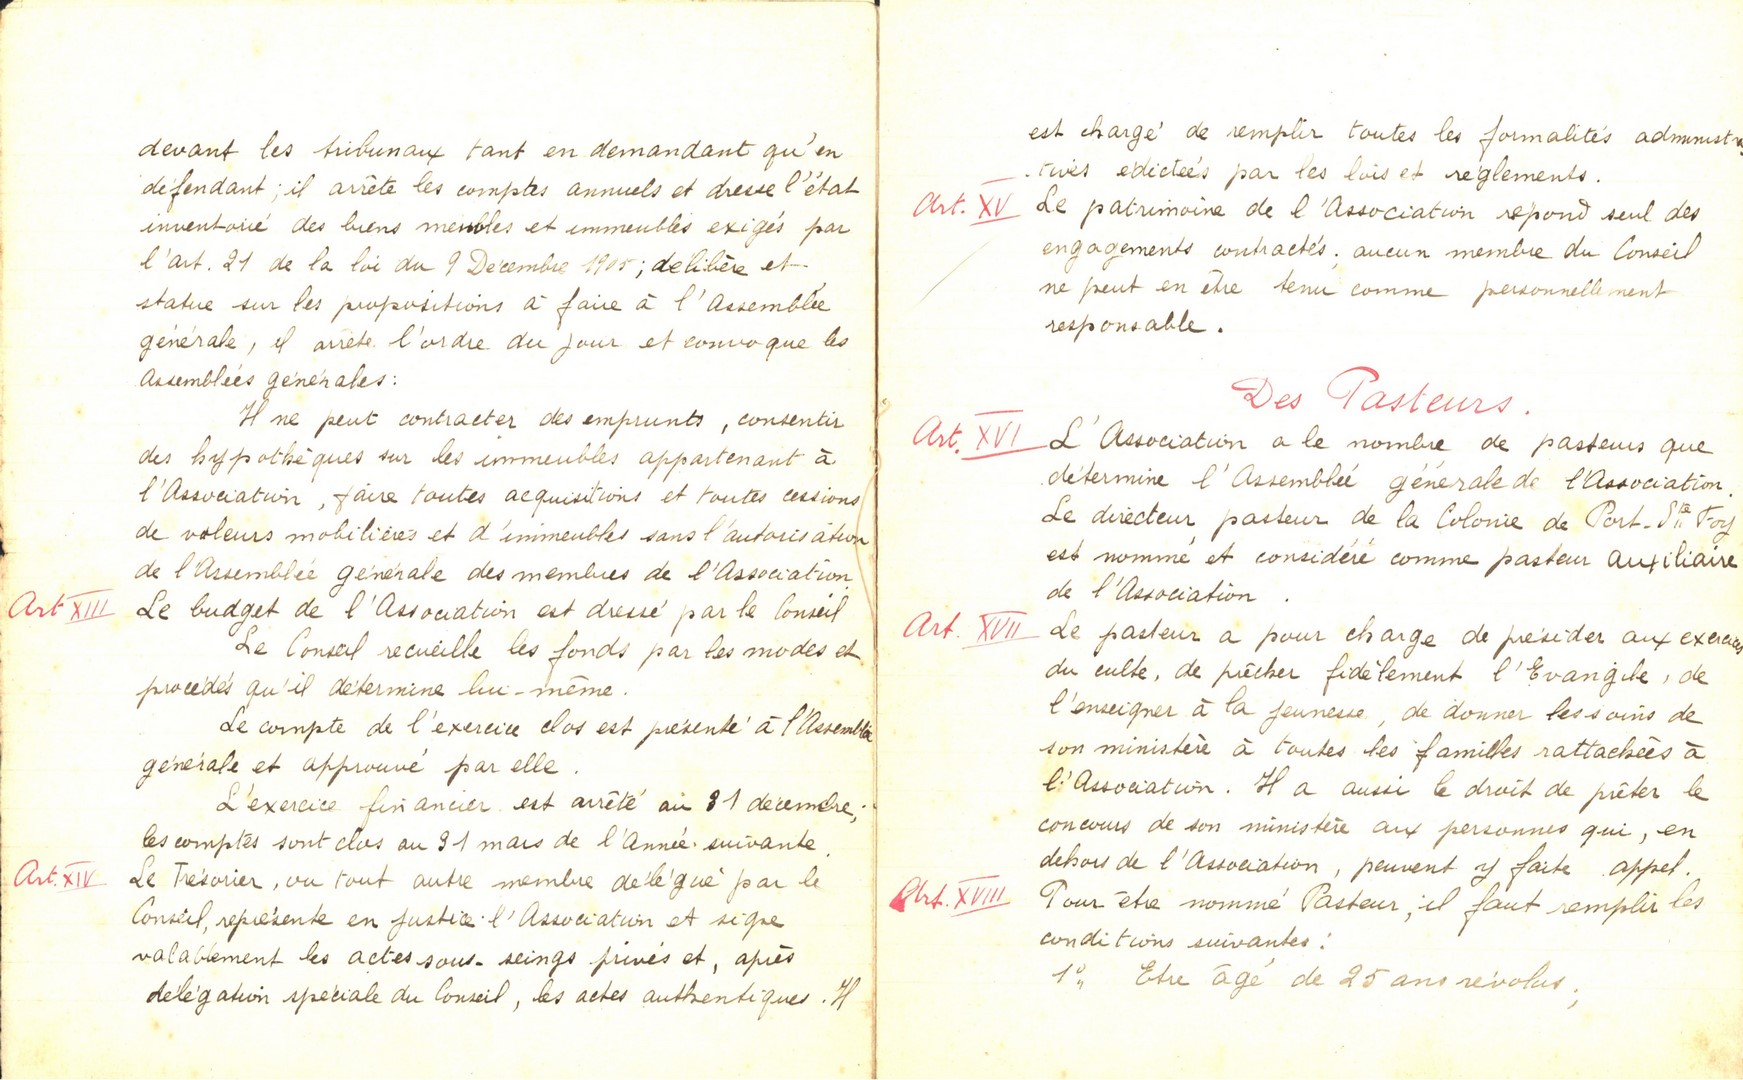 devant les tribunaux tant en demandant qu'en
défendant ; il arrête les comptes annuels et dresse l'état
inventorié des biens meubles et immeubles exigés par
l'art. 21 de la loi du 9 Décembre 1905 ; délibère et
statue sur les propositions à faire à l'Assemblée
générale, il arrête l'ordre du jour et convoque les
Assemblées générales :
Il ne peut contracter des emprunts, consentir
des hypothèques sur les immeubles appartenant à
l'Association, faire toutes acquisitions et toutes cessions
de valeurs mobilières et d'immeubles sans l'autorisation
de l'Assemblée générale des membres de l'Association.
Art XIII Le budget de l'Association est dressé par le Conseil
Le Conseil recueille les fonds par les modes et
procédés qu'il détermine lui-même.
Le compte de l'exercice clos est présenté à l'Assemblée
générale et approuvé par elle.
L'exercice financier est arrêté au 31 décembre ;
les comptes sont clos au 31 mars de l'Année suivante.
Art. XIV Le Trésorier, ou tout autre membre délégué par le
Conseil, représente en justice l'Association et signe
valablement les actes sous-seings privés et, après
délégation spéciale du Conseil, les actes authentiques. Il
est chargé de remplir toutes les formalités administra
-tives édictées par les lois et règlements.
Art. XV Le patrimoine de l'Association répond seul des
engagements contractés ; aucun membre du Conseil
ne peut en être tenu comme personnellement
responsable.
Des Pasteurs.
Art. XVI L'Association a le nombre de pasteurs que
détermine l'Assemblée générale de l'Association.
Le directeur pasteur de la Colonie de Port-Ste Foy
est nommé et considéré comme pasteur auxiliaire
de l'Association.
Art. XVII Le pasteur a pour charge de présider aux exercices
du culte, de prêcher fidèlement l'Evangile, de
l'enseigner à la jeunesse, de donner les soins de
son ministère à toutes les familles rattachées à
l'Association. Il a aussi le droit de prêter le
concours de son ministère aux personnes qui, en
dehors de l'Association, peuvent y faire appel.
Art. XVIII Pour être nommé Pasteur, il faut remplir les
conditions suivantes :
1° Etre âgé de 25 ans révolus ;